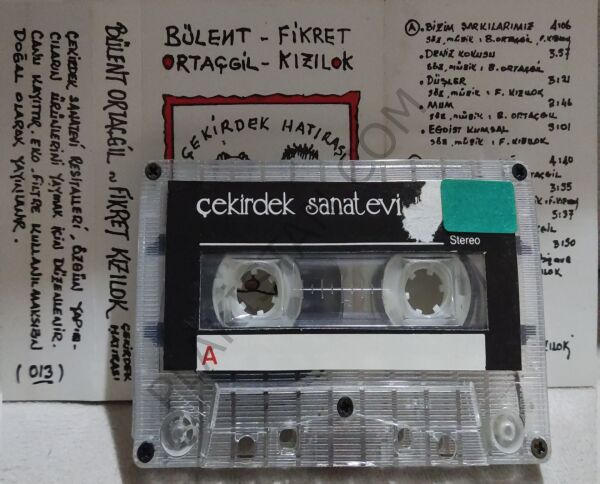 BÜLENT - FİKRET
ORTAÇGİL - KIZILOK
ÇEKİRDEK HATIRASI
A. BİZİM ŞARKILARIMIZ 4:06
SÖZ, MÜZİK : B. ORTAÇGİL, F. KIZILOK
. DENİZ KOKUSU 3:57
SÖZ, MÜZİK : B. ORTAÇGİL
. DÜŞLER 3:21
SÖZ, MÜZİK : F. KIZILOK
. MUM 2:46
SÖZ, MÜZİK : B. ORTAÇGİL
. EGOİST KUMSAL 3:01
SÖZ, MÜZİK : F. KIZILOK
4:40
3:55
5:37
3:50
çekirdek sanatevi
Stereo
A
BÜLENT ORTAÇGİL ~ FİKRET KIZILOK
ÇEKİRDEK
HATIRASI
ÇEKİRDEK SANATEVİ RESİTALLERİ, ÖZGÜN YAPIM-
CILARIN ÜRÜNLERİNİ YAYMAK İÇİN DÜZENLENİR.
CANLI KAYITTIR. EKO, FİLTRE KULLANILMAKSIZIN
DOĞAL OLARAK YAYINLANIR.
(013)